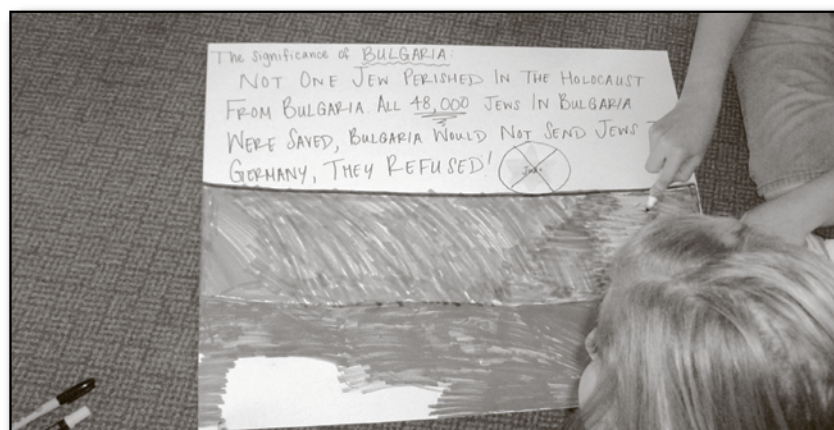 The significance of BULGARIA:
NOT ONE JEW PERISHED IN THE HOLOCAUST
FROM BULGARIA. ALL 48,000 JEWS IN BULGARIA
WERE SAVED, BULGARIA WOULD NOT SEND JEWS
GERMANY, THEY REFUSED!